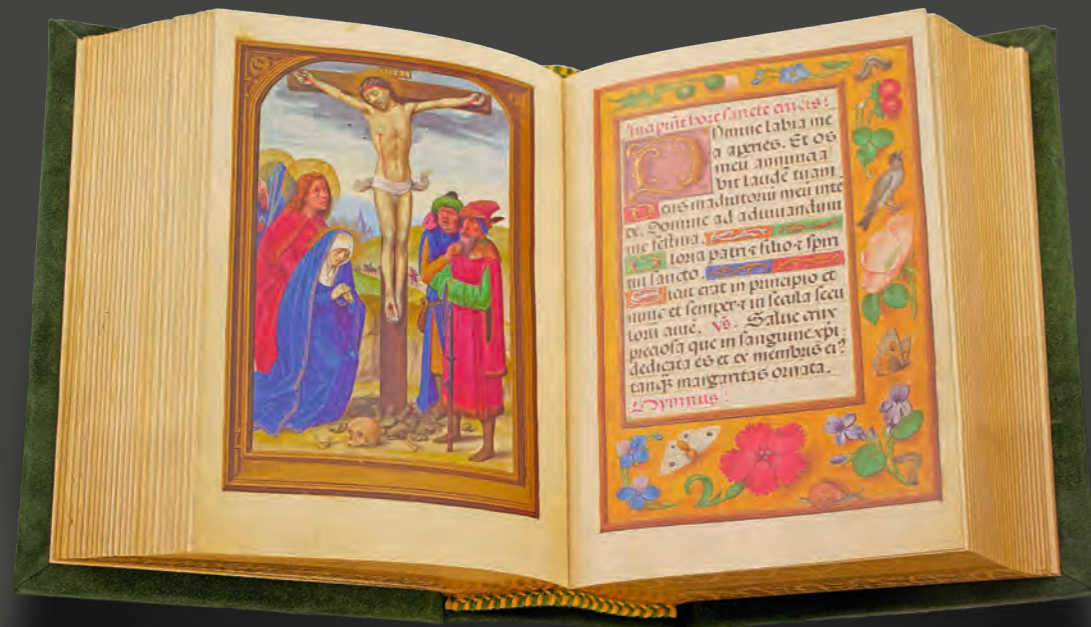 INRI
Incipiut hore sancte crucis :
Domine labia me
a aperies. Et os
meu annuncia
bit laude tuam
Deus in adiutoriu meu inte
de. Domine ad adiuuandum
me festina.
Gloria patri ⁊ filio ⁊ spiri
tui sancto.
Sicut erat in principio et
nunc et semper ⁊ in secula secu
loru ame. Vs. Salue crux
preciosa que in sanguine xpi
dedicata es et ex membris ei⁹
tanq̃ margaritas ornata.
Hympnus :